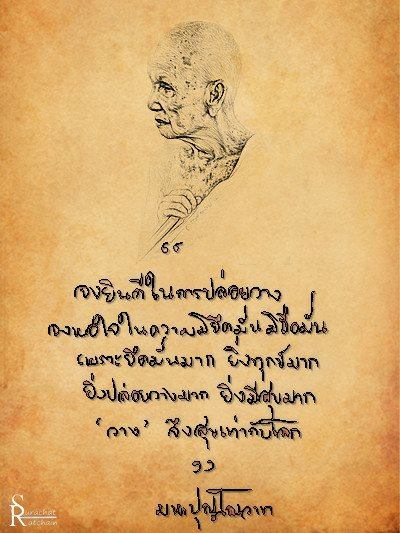 “
จงยินดีในการปล่อยวาง
จงพอใจในความไม่ยึดมั่นถือมั่น
เพราะยึดมั่นมาก ยิ่งทุกข์มาก
ยิ่งปล่อยวางมาก ยิ่งมีสุขมาก
'วาง' ถึงสุขเท่ากับโลก
”
Surachat
Ratchain